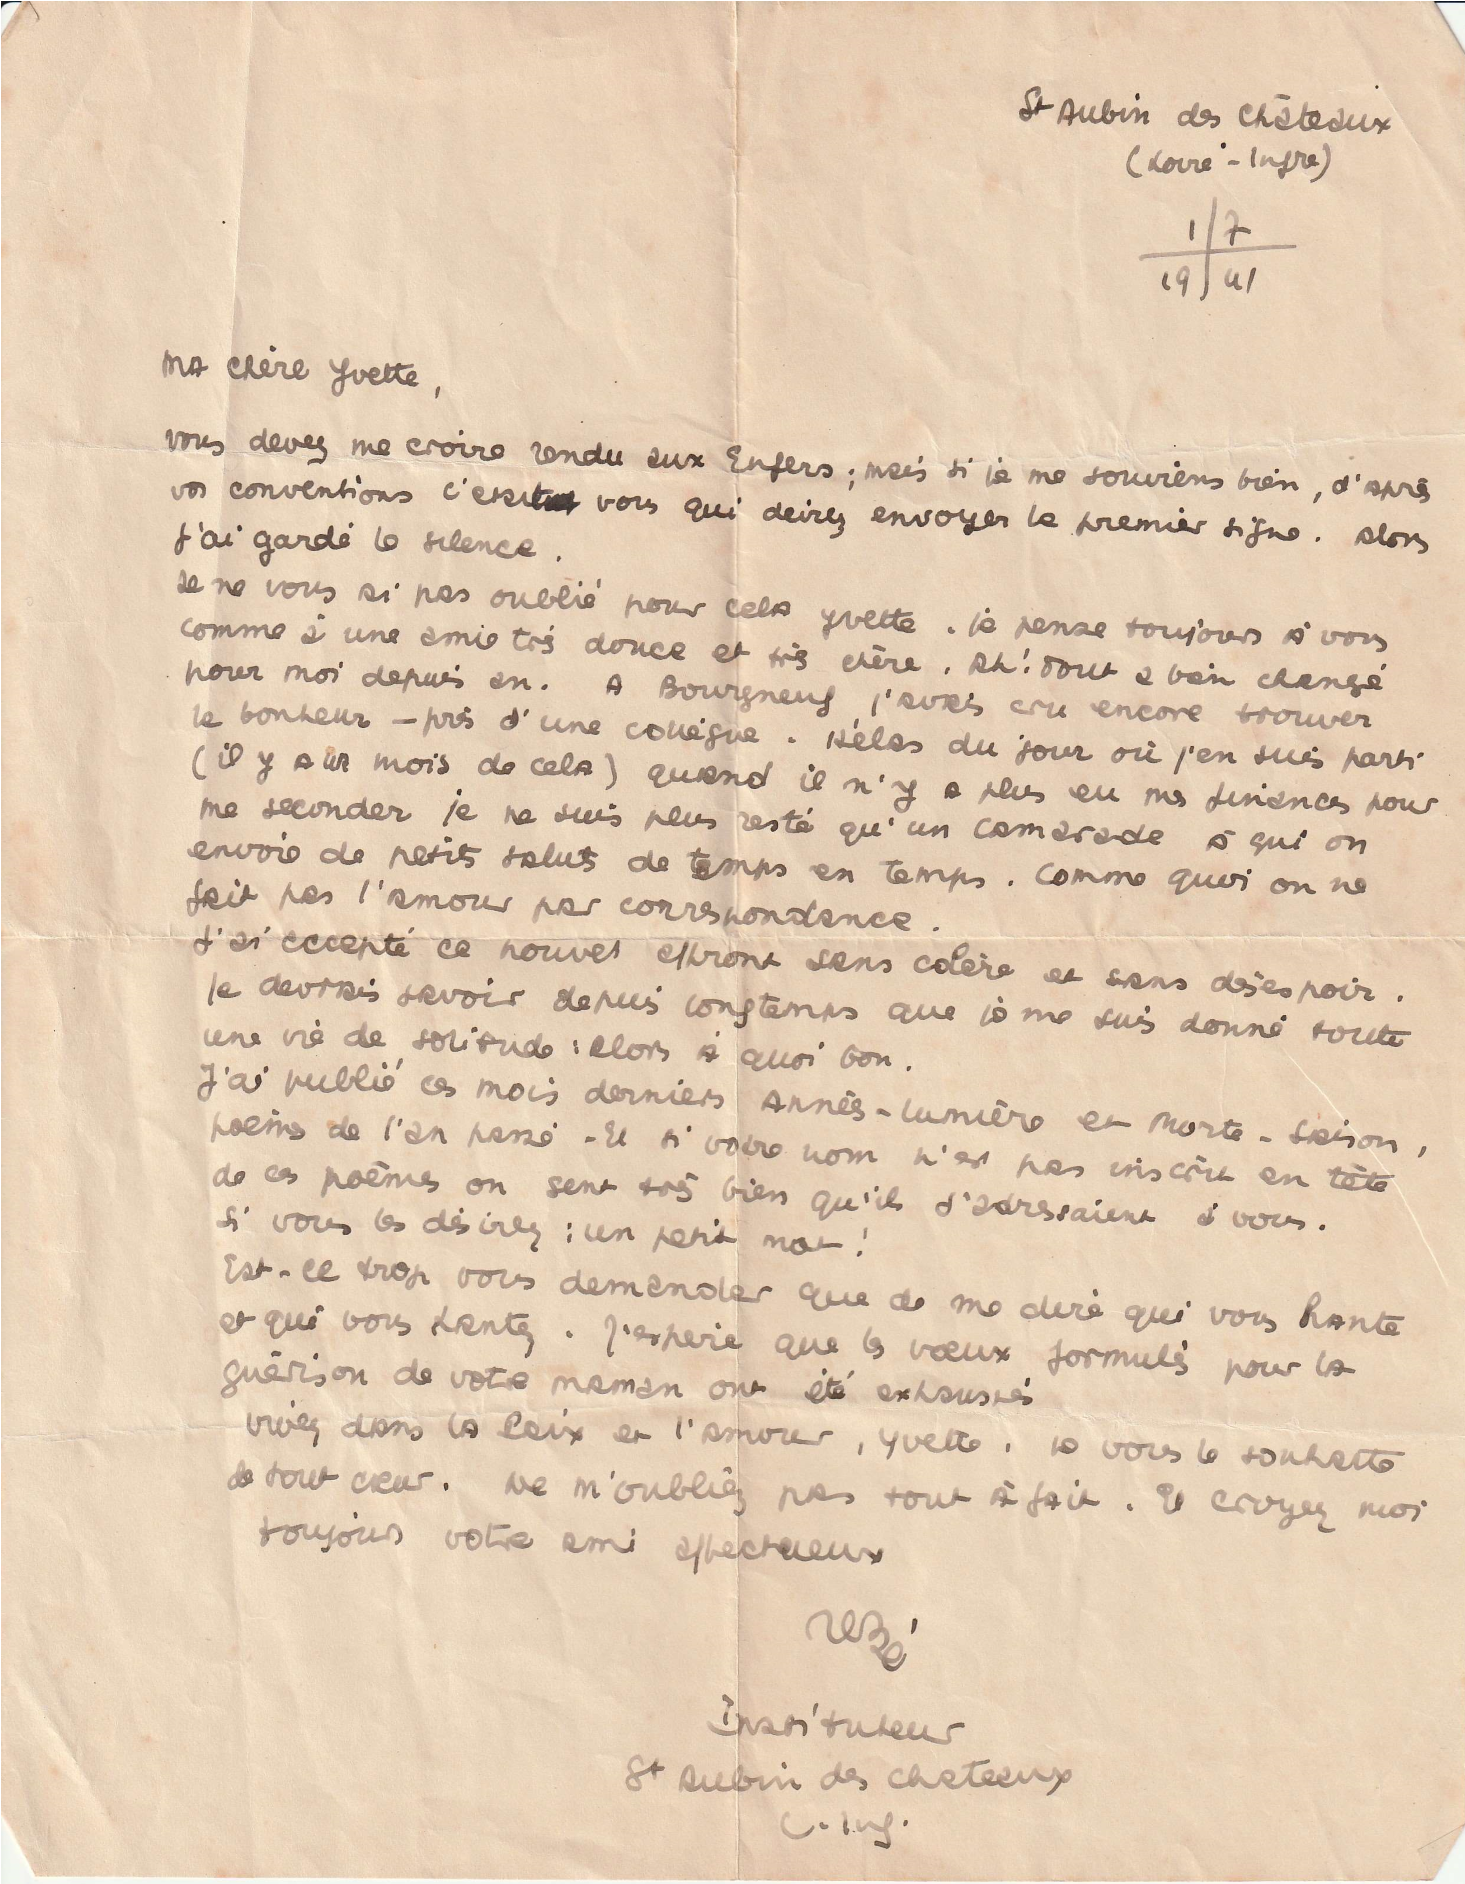 St Aubin des Châteaux
(Loire-Infre)
1 7
19 41
Ma chère Yvette,
vous devez me croire rendu aux Enfers ; mais si je me souviens bien, d'après
vos conventions c'était vous qui deviez envoyer le premier signe. Alors
j'ai gardé le silence.
Je ne vous ai pas oublié pour cela Yvette. Je pense toujours à vous
comme à une amie très douce et très chère. Ah! tout a bien changé
pour moi depuis an. A Bourgneuf j'avais cru encore trouver
le bonheur - près d'une collègue. Hélas du jour où j'en suis parti
(il y a mois de cela) quand il n'y a plus eu ma présence pour
me seconder je ne suis plus resté qu'un camarade à qui on
envoie de petits saluts de temps en temps. Comme quoi on ne
fait pas l'amour par correspondance.
J'ai accepté ce nouvel affront sans colère et sans désespoir.
Je devrais savoir depuis longtemps que je me suis donné toute
une vie de solitude : alors à quoi bon.
J'ai publié ces mois derniers Années-lumière et Morte-Saison,
poèmes de l'an passé - Et si votre nom n'est pas inscrit en tête
de ces poèmes on sent très bien qu'ils s'adressaient à vous.
Si vous les désirez : un petit mot !
Est-ce trop vous demander que de me dire qui vous hante
et qui vous hantez. J'espère que les voeux formulés pour la
guérison de votre maman ont été exhaussés
vivez dans la Paix et l'amour, Yvette, je vous le souhaite
de tout coeur. Ne m'oubliez pas tout à fait. Et croyez moi
toujours votre ami affectueux
Instituteur
St Aubin des chateaux
L. Inf.